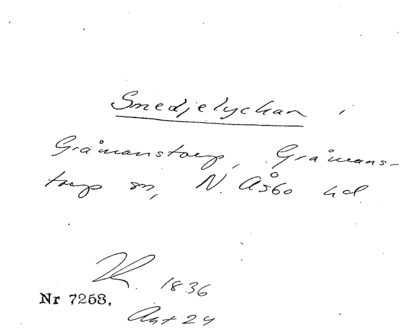 Smedjelyckan i
Gråmanstorp, Gråmans-
torp sn, N. Åsbo hd.
LR. 1836
Nr 7258.
Akt 24